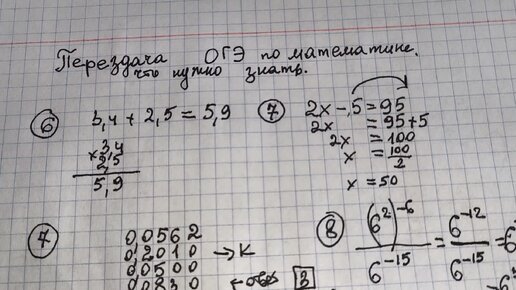 Перездача ОГЭ по математике.
что нужно знать.
6 3,4 + 2,5 = 5,9
× 3,4
2,5
5,9
7 2x - 5 = 95
2x = 95 + 5
2x = 100
x = 100/2
x = 50
7 0,0562
0,2010 → К
0,0500
0,0830 ← ответ 3
8 (6²)⁻⁶ / 6⁻¹⁵ = 6⁻¹² / 6⁻¹⁵ = 6